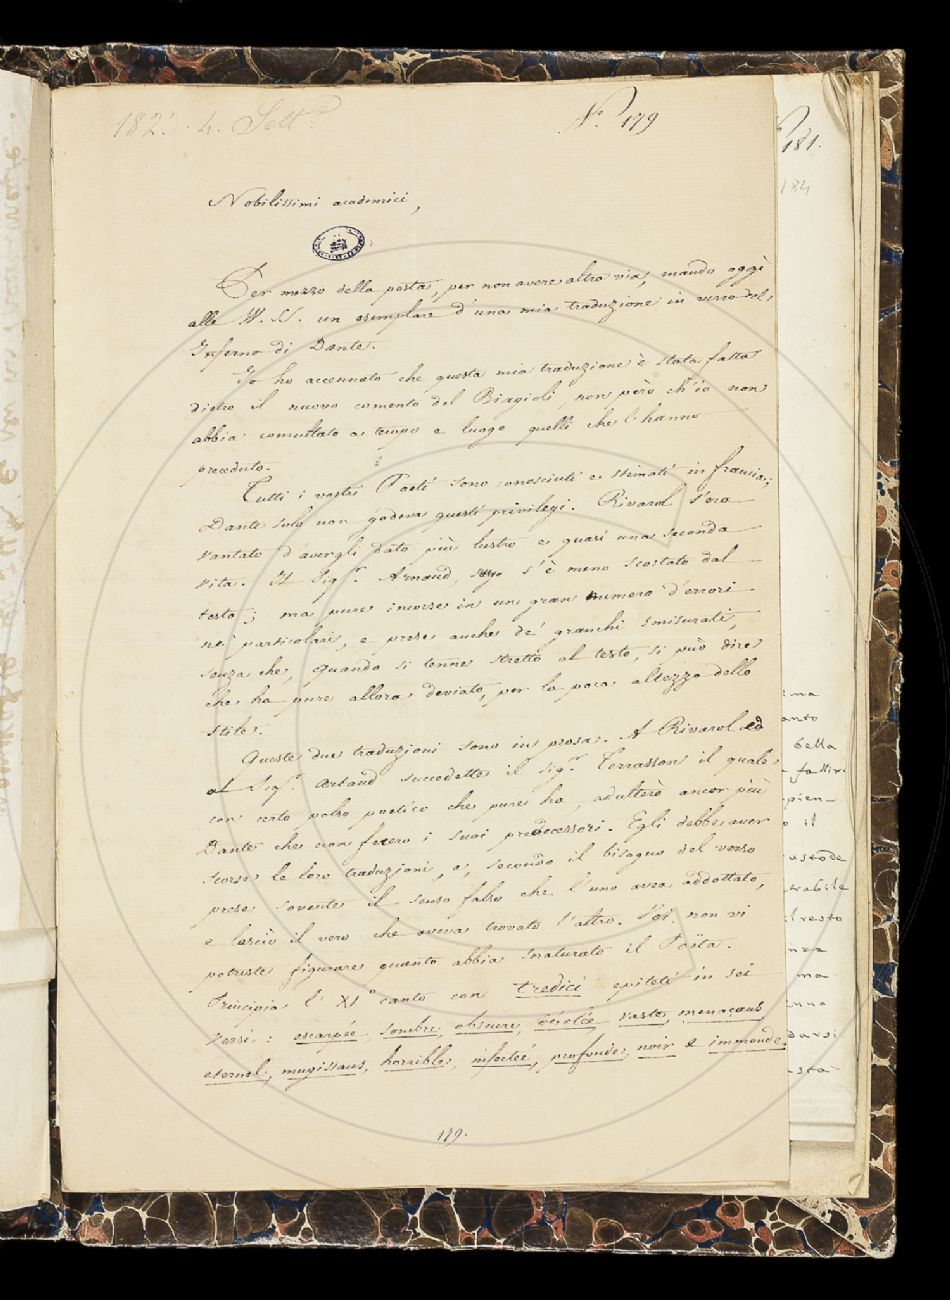 1823. 4. Sett.e
N.o 179
Nobilissimi academici,
Per mezzo della posta, per non avere altra via, mando oggi
alle W. SS. un esemplare d'una mia traduzione in verso del
Inferno di Dante.
Io ho accennato che questa mia traduzione è stata fatta
dietro il nuovo comento del Biagioli, non però ch'io non
abbia consultato a tempo e luogo quelli che l'hanno
preceduto.
Tutti i vostri Poeti sono conosciuti e stimati in francia;
Dante solo non godeva questi privilegi. Rivarol s'era
vantato d'avergli dato più lustro e quasi una seconda
vita. Il Sig.r Arnaud, s'è meno scostato dal
testo; ma pure incorse in un gran numero d'errori
ne' particolari, e prese anche de' granchi smisurati,
senza che, quando si tenne stretto al testo, si può dire
che ha pure allora deviato, per la poca altezza dello
stile.
Queste due traduzioni sono in prosa. A Rivarol ed
al Sig.r Artaud succedette il Sig.r Terrasson il quale
con certo polso poetico che pure ha, adulterò ancor più
Dante che non fecero i suoi predecessori. Egli debbe aver
scorse le loro traduzioni, e, secondo il bisogno del verso
prese sovente il senso falso che l'uno avea addottato,
e lasciò il vero che aveva trovato l'altro. Voi non vi
potreste figurare quanto abbia snaturato il Poëta.
Principia l'XI.o canto con tredici epiteti in sei
versi: escarpée, sombre, obscure, vaste, menaçant,
eternel, mugissans, horrible, infectée, profonde, noir e immonde.
179.
No 181.
184